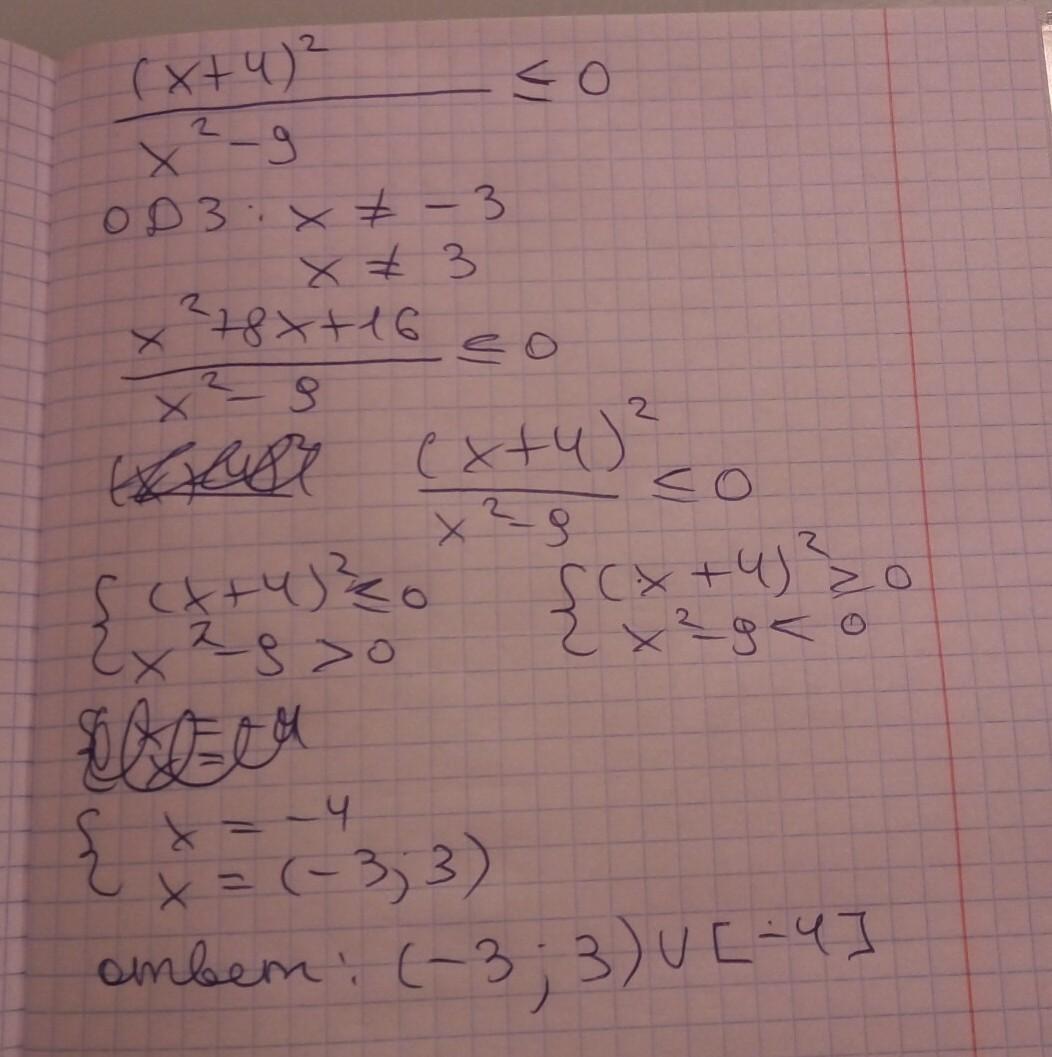 (x+4)²
――― ≤ 0
x² - 9
ОДЗ: x ≠ -3
x ≠ 3
x²+8x+16
――― ≤ 0
x² - 9
(x+4)²
――― ≤ 0
x² - 9
{ (x+4)² ≤ 0
x² - 9 > 0
{ (x+4)² ≥ 0
x² - 9 < 0
{ x = -4
x = (-3; 3)
ответ: (-3; 3) ∪ [-4]